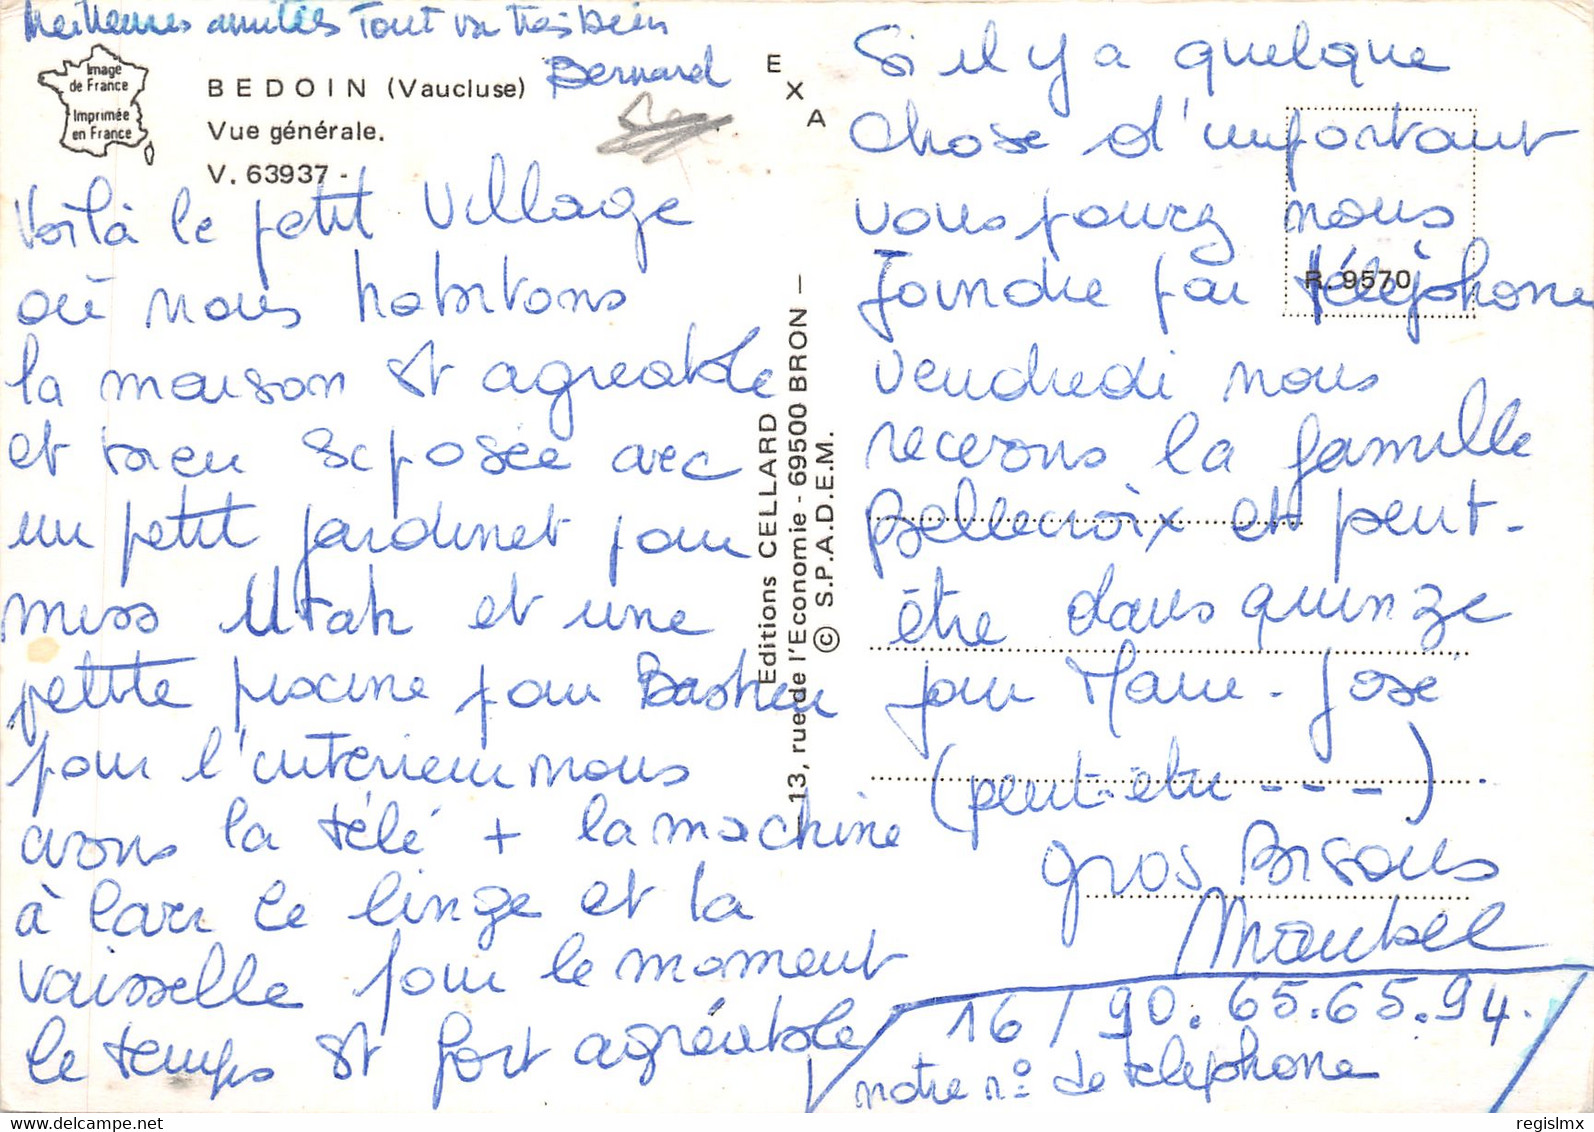 Meilleures amitiés Tout va très bien
Bernard
Image
de France
Imprimée
en France
BEDOIN (Vaucluse)
Vue générale.
V. 63937 -
Voilà le petit village
où nous habitons
la maison est agréable
et bien exposée avec
un petit jardinet pour
miss Utah et une
petite piscine pour Bastien
pour l'intérieur nous
avons la télé + la machine
à laver le linge et la
vaisselle pour le moment
le temps est fort agréable
E X A
Editions CELLARD
13, rue de l'Economie - 69500 BRON —
© S.P.A.D.E.M.
Si il y a quelque
chose d'important
vous pouvez nous
joindre par téléphone
R. 9570
vendredi nous
recevons la famille
Bellecroix et peut-
être dans quinze
jour Marie-José
(peut-être - - - ) .
gros Bisous
Maubel
16 / 90.65.65.94.
notre n° de telephone
regislmx
www.delcampe.net